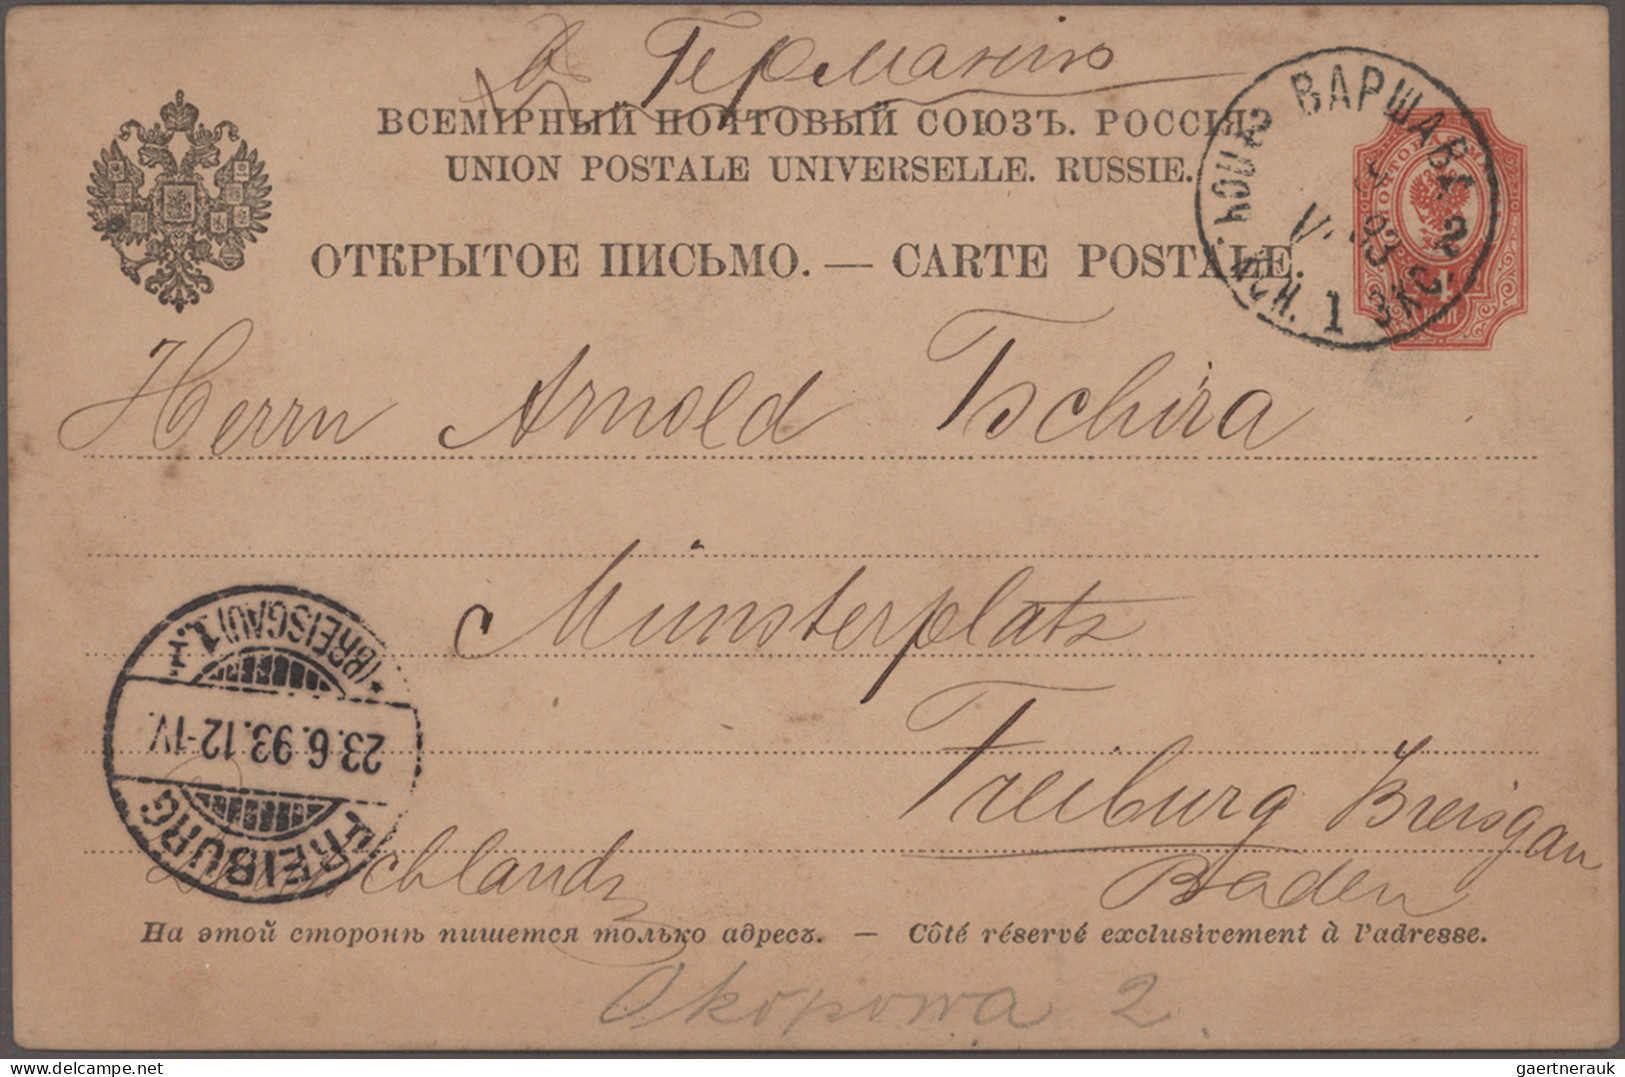 въ Германію
ВСЕМІРНЫЙ ПОЧТОВЫЙ СОЮЗЪ. РОССІЯ.
UNION POSTALE UNIVERSELLE. RUSSIE.
ОТКРЫТОЕ ПИСЬМО. — CARTE POSTALE.
ВАРШАВА 2
V 93
1 ЭКС.
Herrn Arnold Tschira
Münsterplatz
Freiburg Breisgau
Baden
Deutschland
FREIBURG
23.6.93.12-1V.
(BREISGAU) 1.
На этой сторонѣ пишется только адресъ. — Côté réservé exclusivement à l'adresse.
Okopowa 2.
gaertnerauk